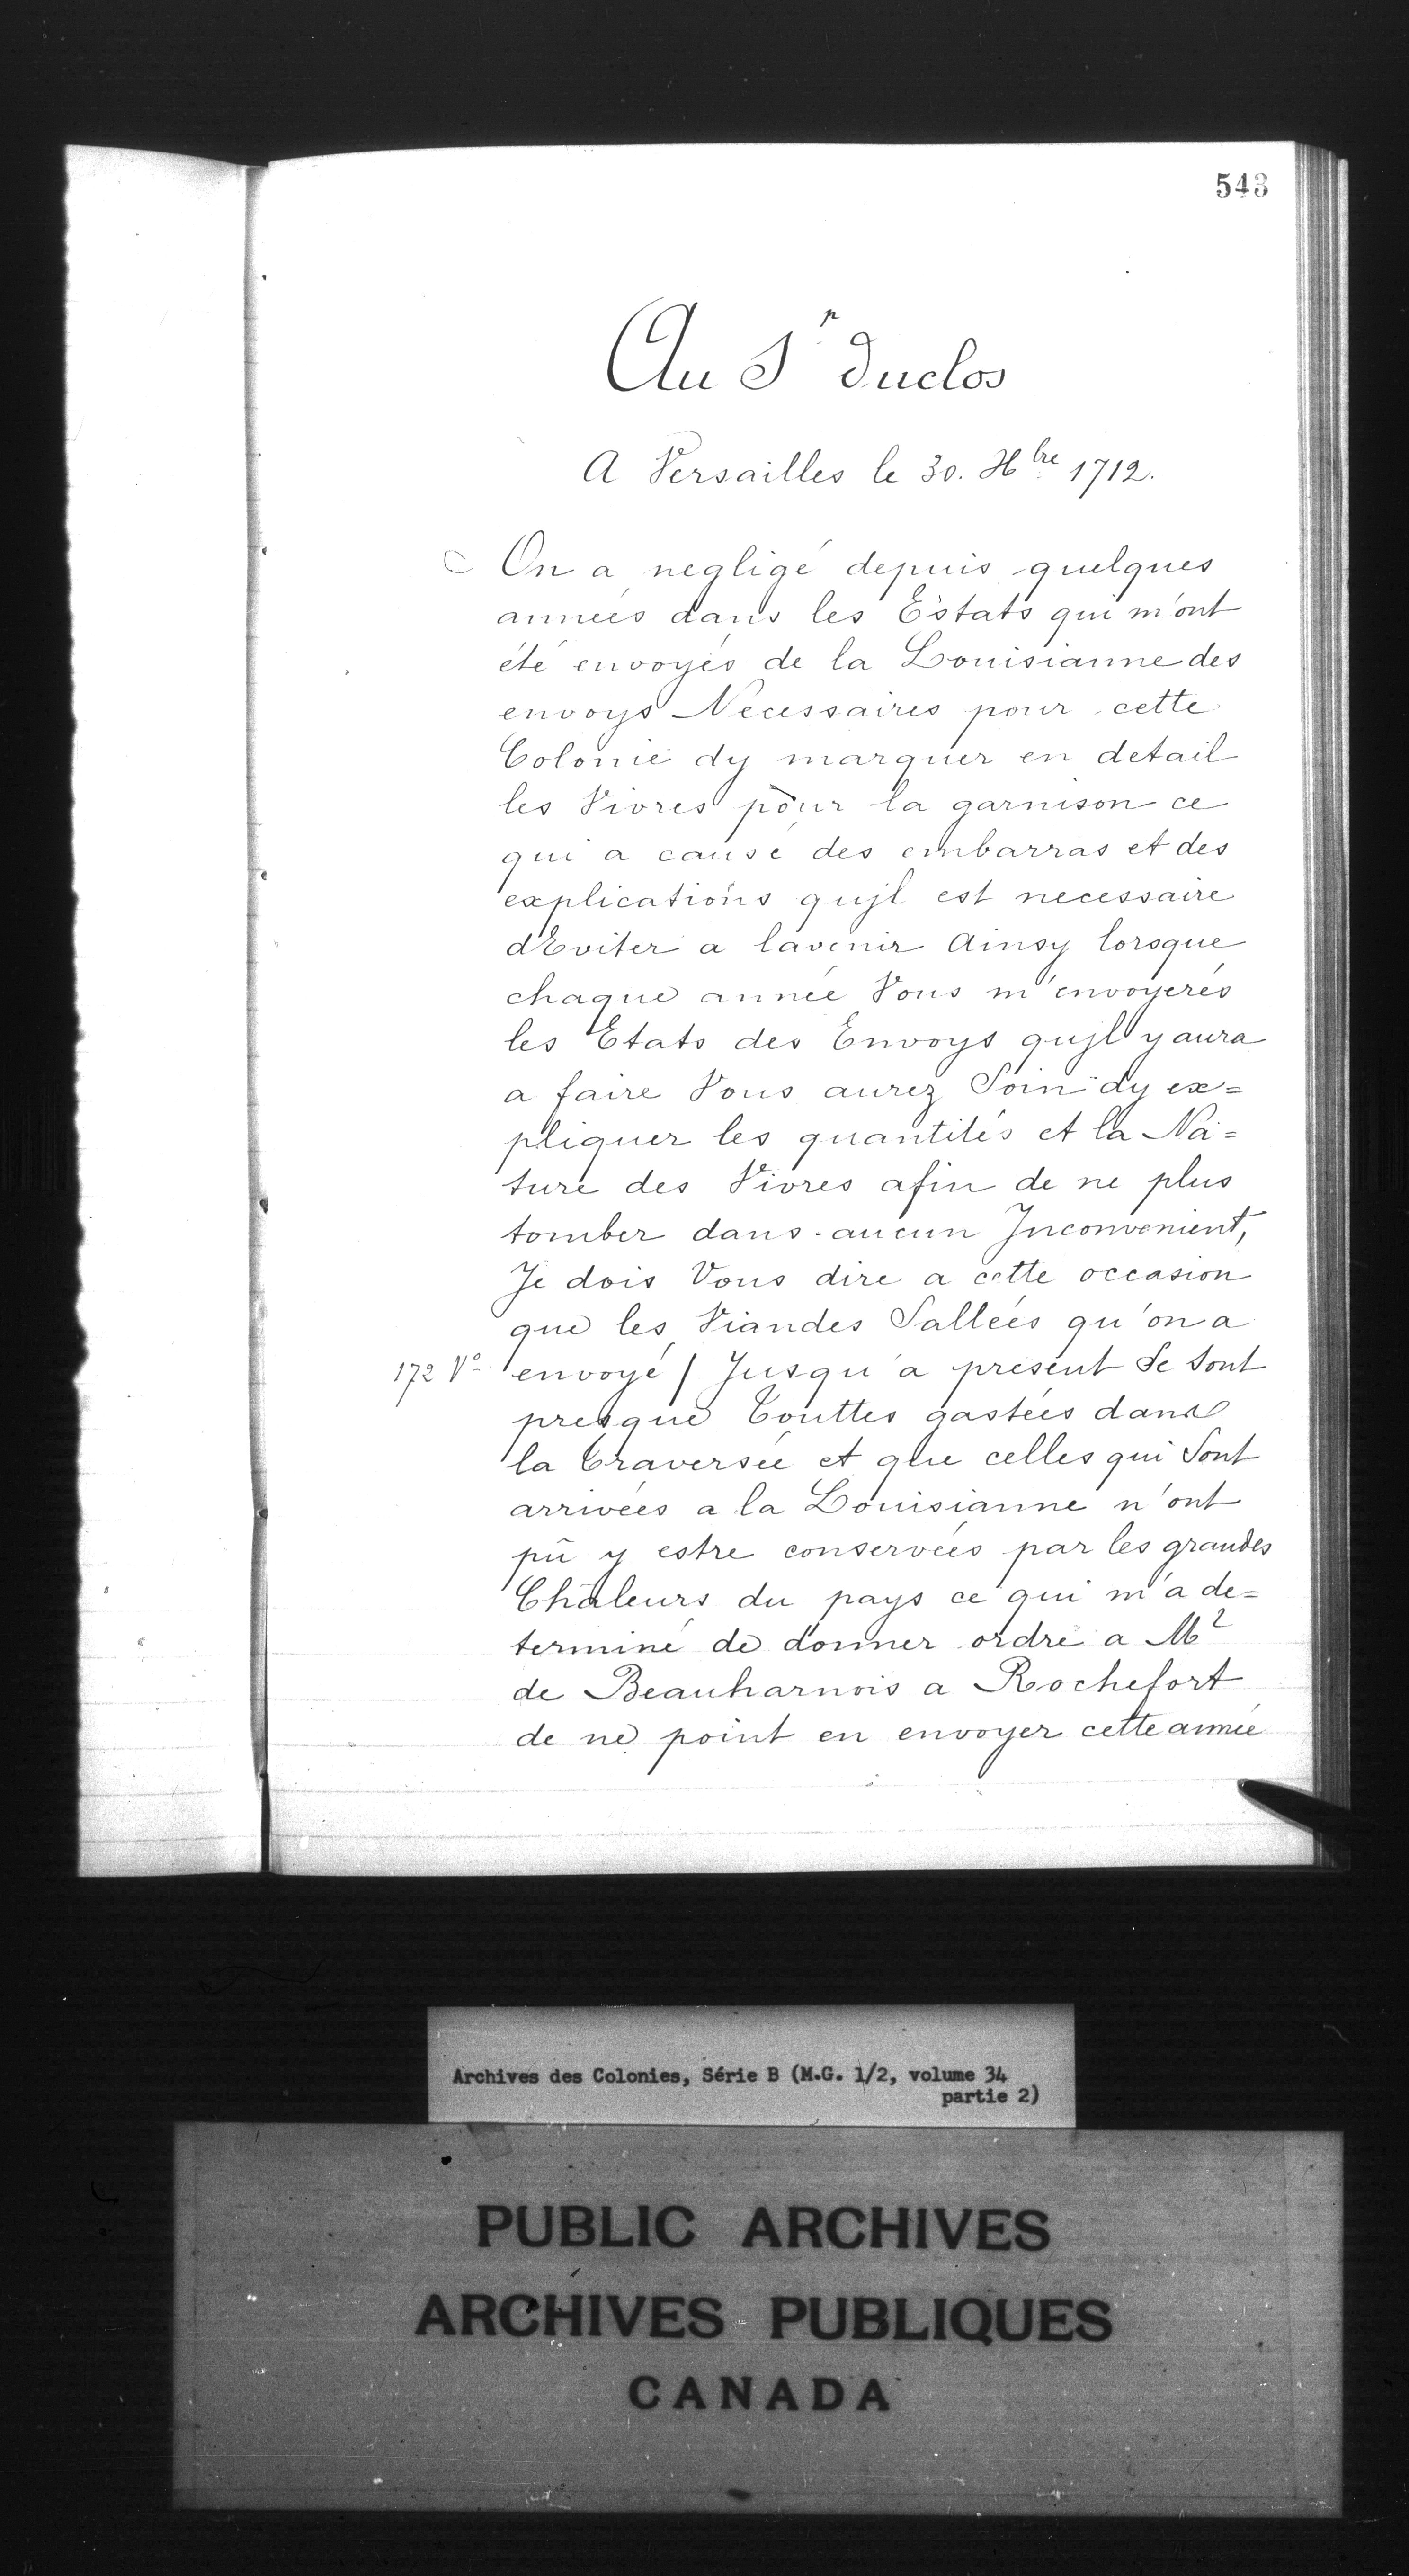 543
Au Sr duclos
A Versailles le 30. Xbre 1712.
On a negligé depuis quelques
années dans les Estats qui m'ont
été envoyés de la Louisianne des
envoys Necessaires pour cette
Colonie dy marquer en detail
les Vivres pour la garnison ce
qui a causé des embarras et des
explications qujl est necessaire
dEviter a lavenir Ainsy lorsque
chaque année Vous m'envoyerés
les Etats des Envoys qujl y aura
a faire Vous aurez Soin dy ex=
pliquer les quantités et la Na=
ture des Vivres afin de ne plus
tomber dans aucun Jnconvenient,
Je dois Vous dire a cette occasion
que les Viandes Sallées qu'on a
172 Vo envoyé / Jusqu'a present Se Sont
presque Touttes gastées dans
la Traversée et que celles qui Sont
arrivées a la Louisianne n'ont
pû y estre conservées par les grandes
Chaleurs du pays ce qui m'a de=
terminé de donner ordre a Mr
de Beauharnois a Rochefort
de ne point en envoyer cette année
Archives des Colonies, Série B (M.G. 1/2, volume 34
partie 2)
PUBLIC ARCHIVES
ARCHIVES PUBLIQUES
CANADA